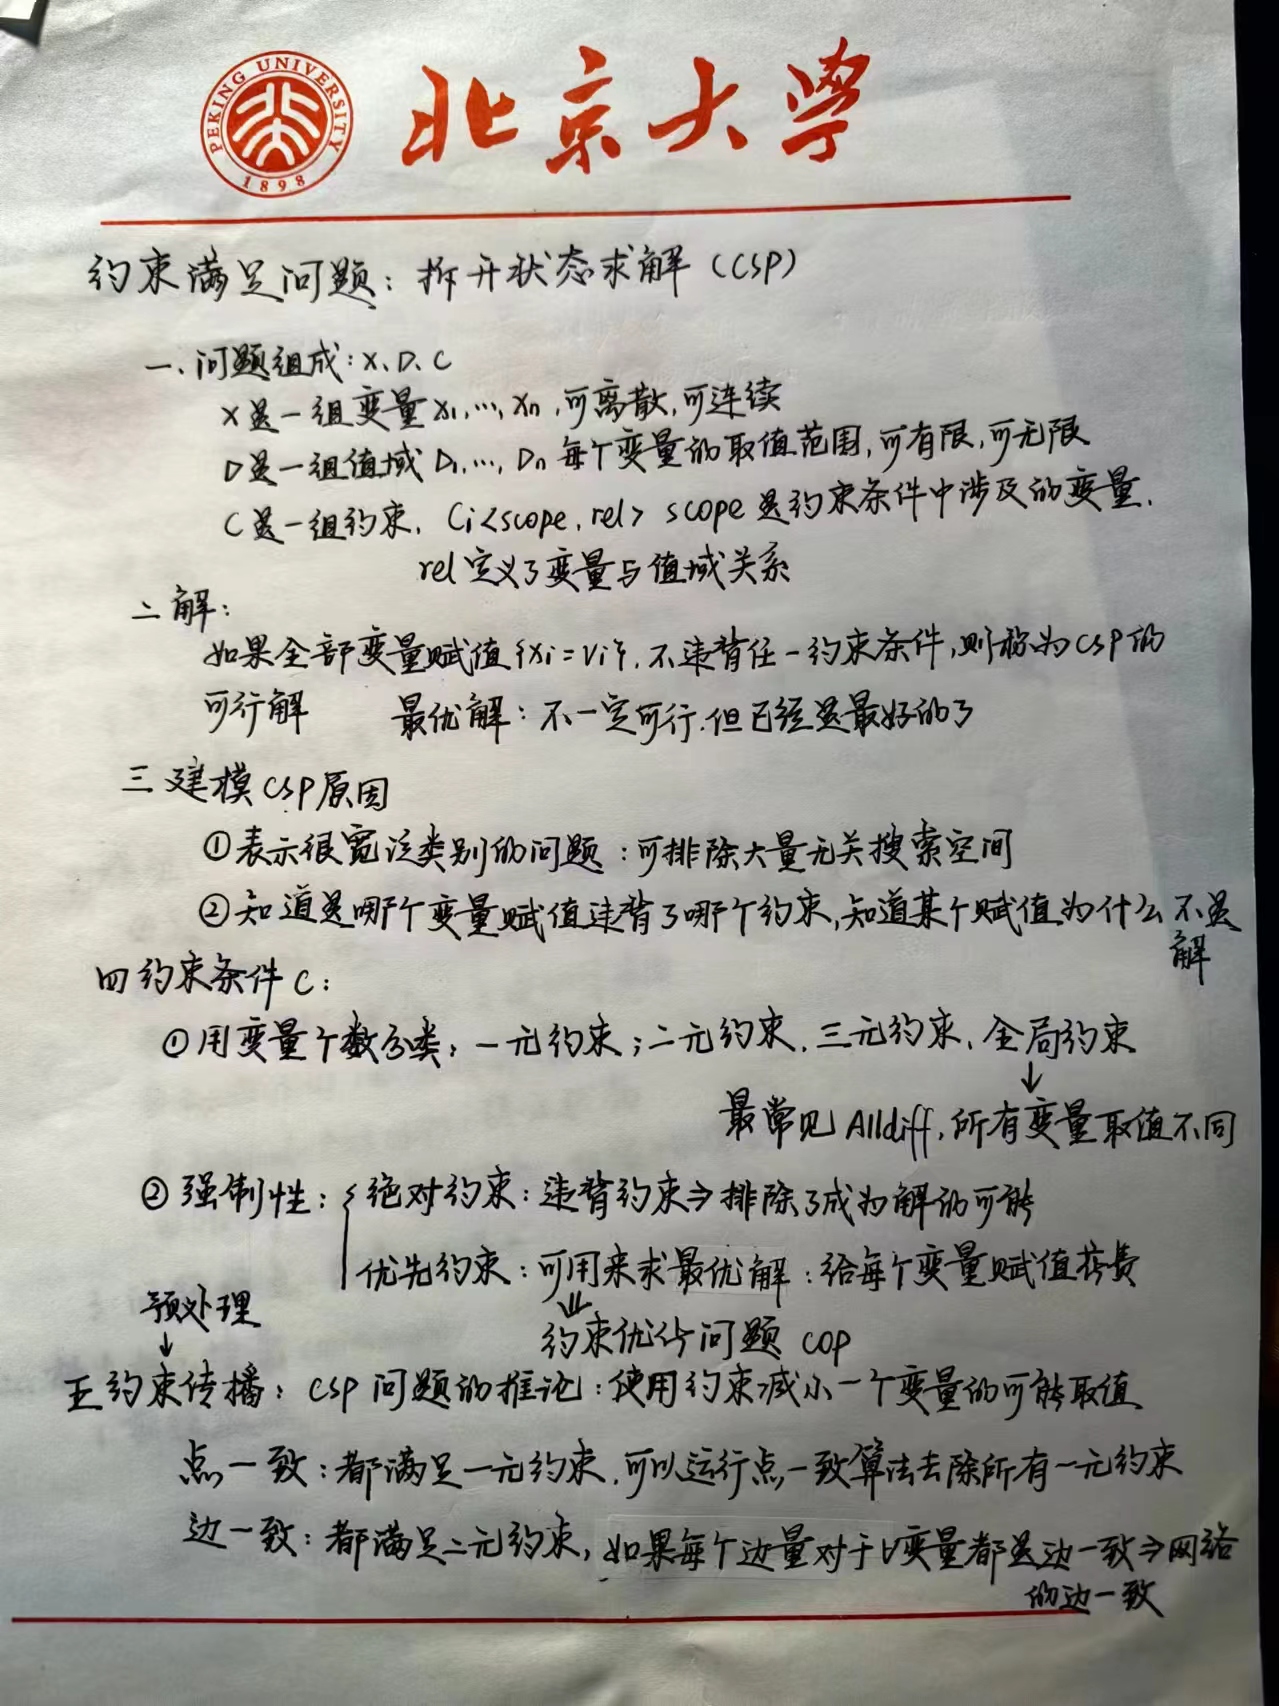 PEKING UNIVERSITY
1898
北京大学
约束满足问题：拆开状态求解（CSP）
一、问题组成：X、D、C
X是一组变量 X1,…,Xn，可离散，可连续
D是一组值域 D1,…,Dn 每个变量的取值范围，可有限，可无限
C是一组约束，Ci<scope，rel> scope是约束条件中涉及的变量，
rel定义了变量与值域关系
二 解：
如果全部变量赋值{xi=vi}，不违背任一约束条件，则称为CSP的
可行解 最优解：不一定可行，但已经是最好的了
三 建模CSP原因
①表示很宽泛类别的问题：可排除大量无关搜索空间
②知道是哪个变量赋值违背了哪个约束，知道某个赋值为什么不是
解
四 约束条件C：
①用变量个数分类：一元约束；二元约束、三元约束、全局约束
↓
最常见Alldiff，所有变量取值不同
②强制性：{绝对约束：违背约束⇒排除了成为解的可能
优先约束：可用来求最优解：给每个变量赋值花费
⇓
预处理
约束优化问题 COP
↓
五 约束传播：CSP问题的推论：使用约束减小一个变量的可能取值
点一致：都满足一元约束，可以运行点一致算法去除所有一元约束
边一致：都满足二元约束，如果每个边量对于变量都是边一致⇒网络
的边一致